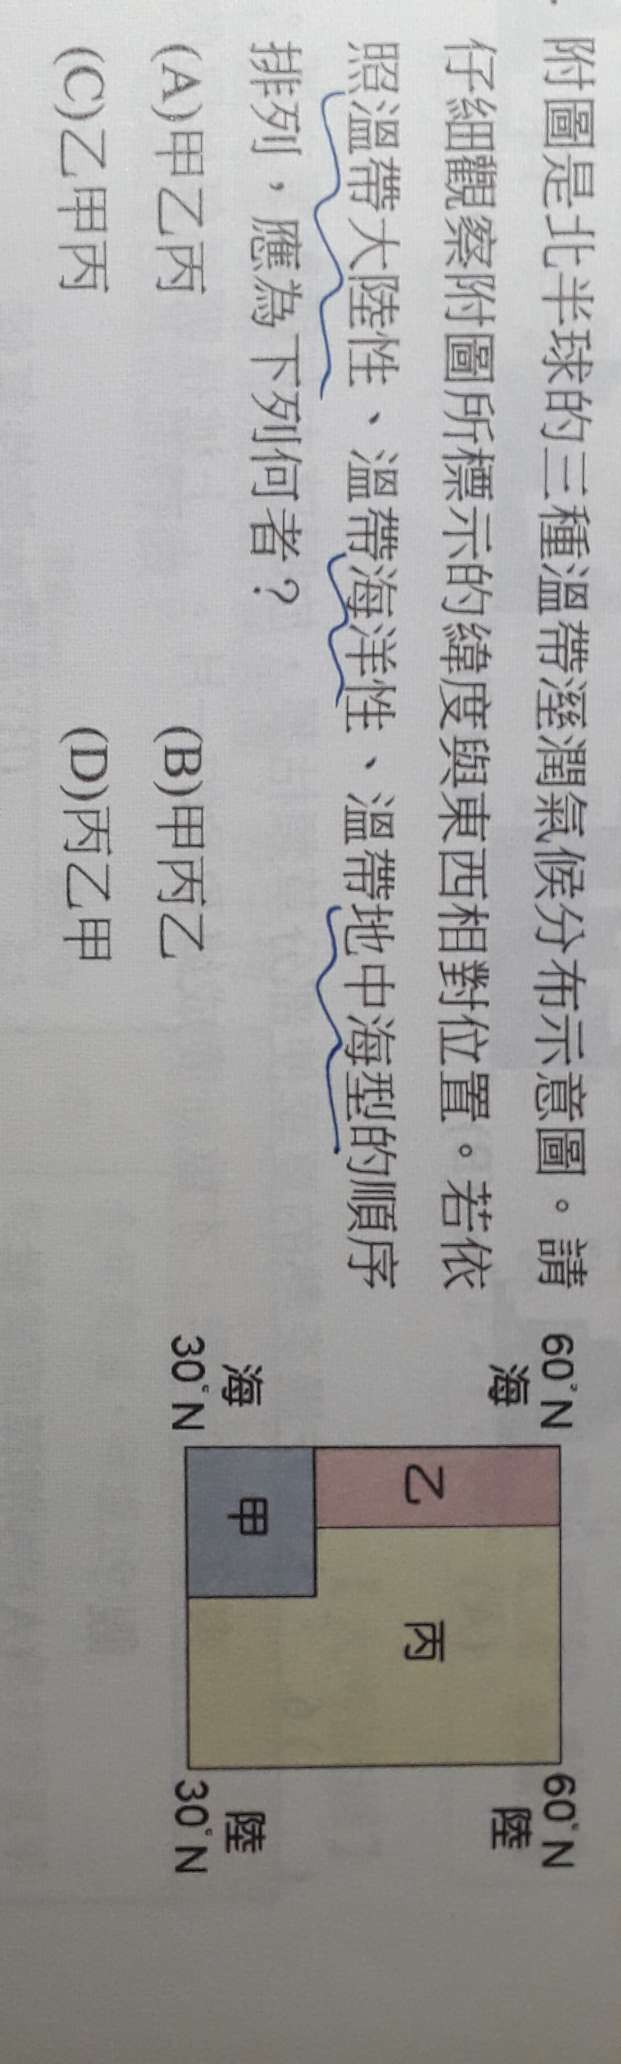 附圖是北半球的三種溫帶溼潤氣候分布示意圖。請
仔細觀察附圖所標示的緯度與東西相對位置。若依
照溫帶大陸性、溫帶海洋性、溫帶地中海型的順序
排列，應為下列何者？
(A)甲乙丙 (B)甲丙乙
(C)乙甲丙 (D)丙乙甲
60°N 60°N
海 陸
乙 丙
甲
海 陸
30°N 30°N